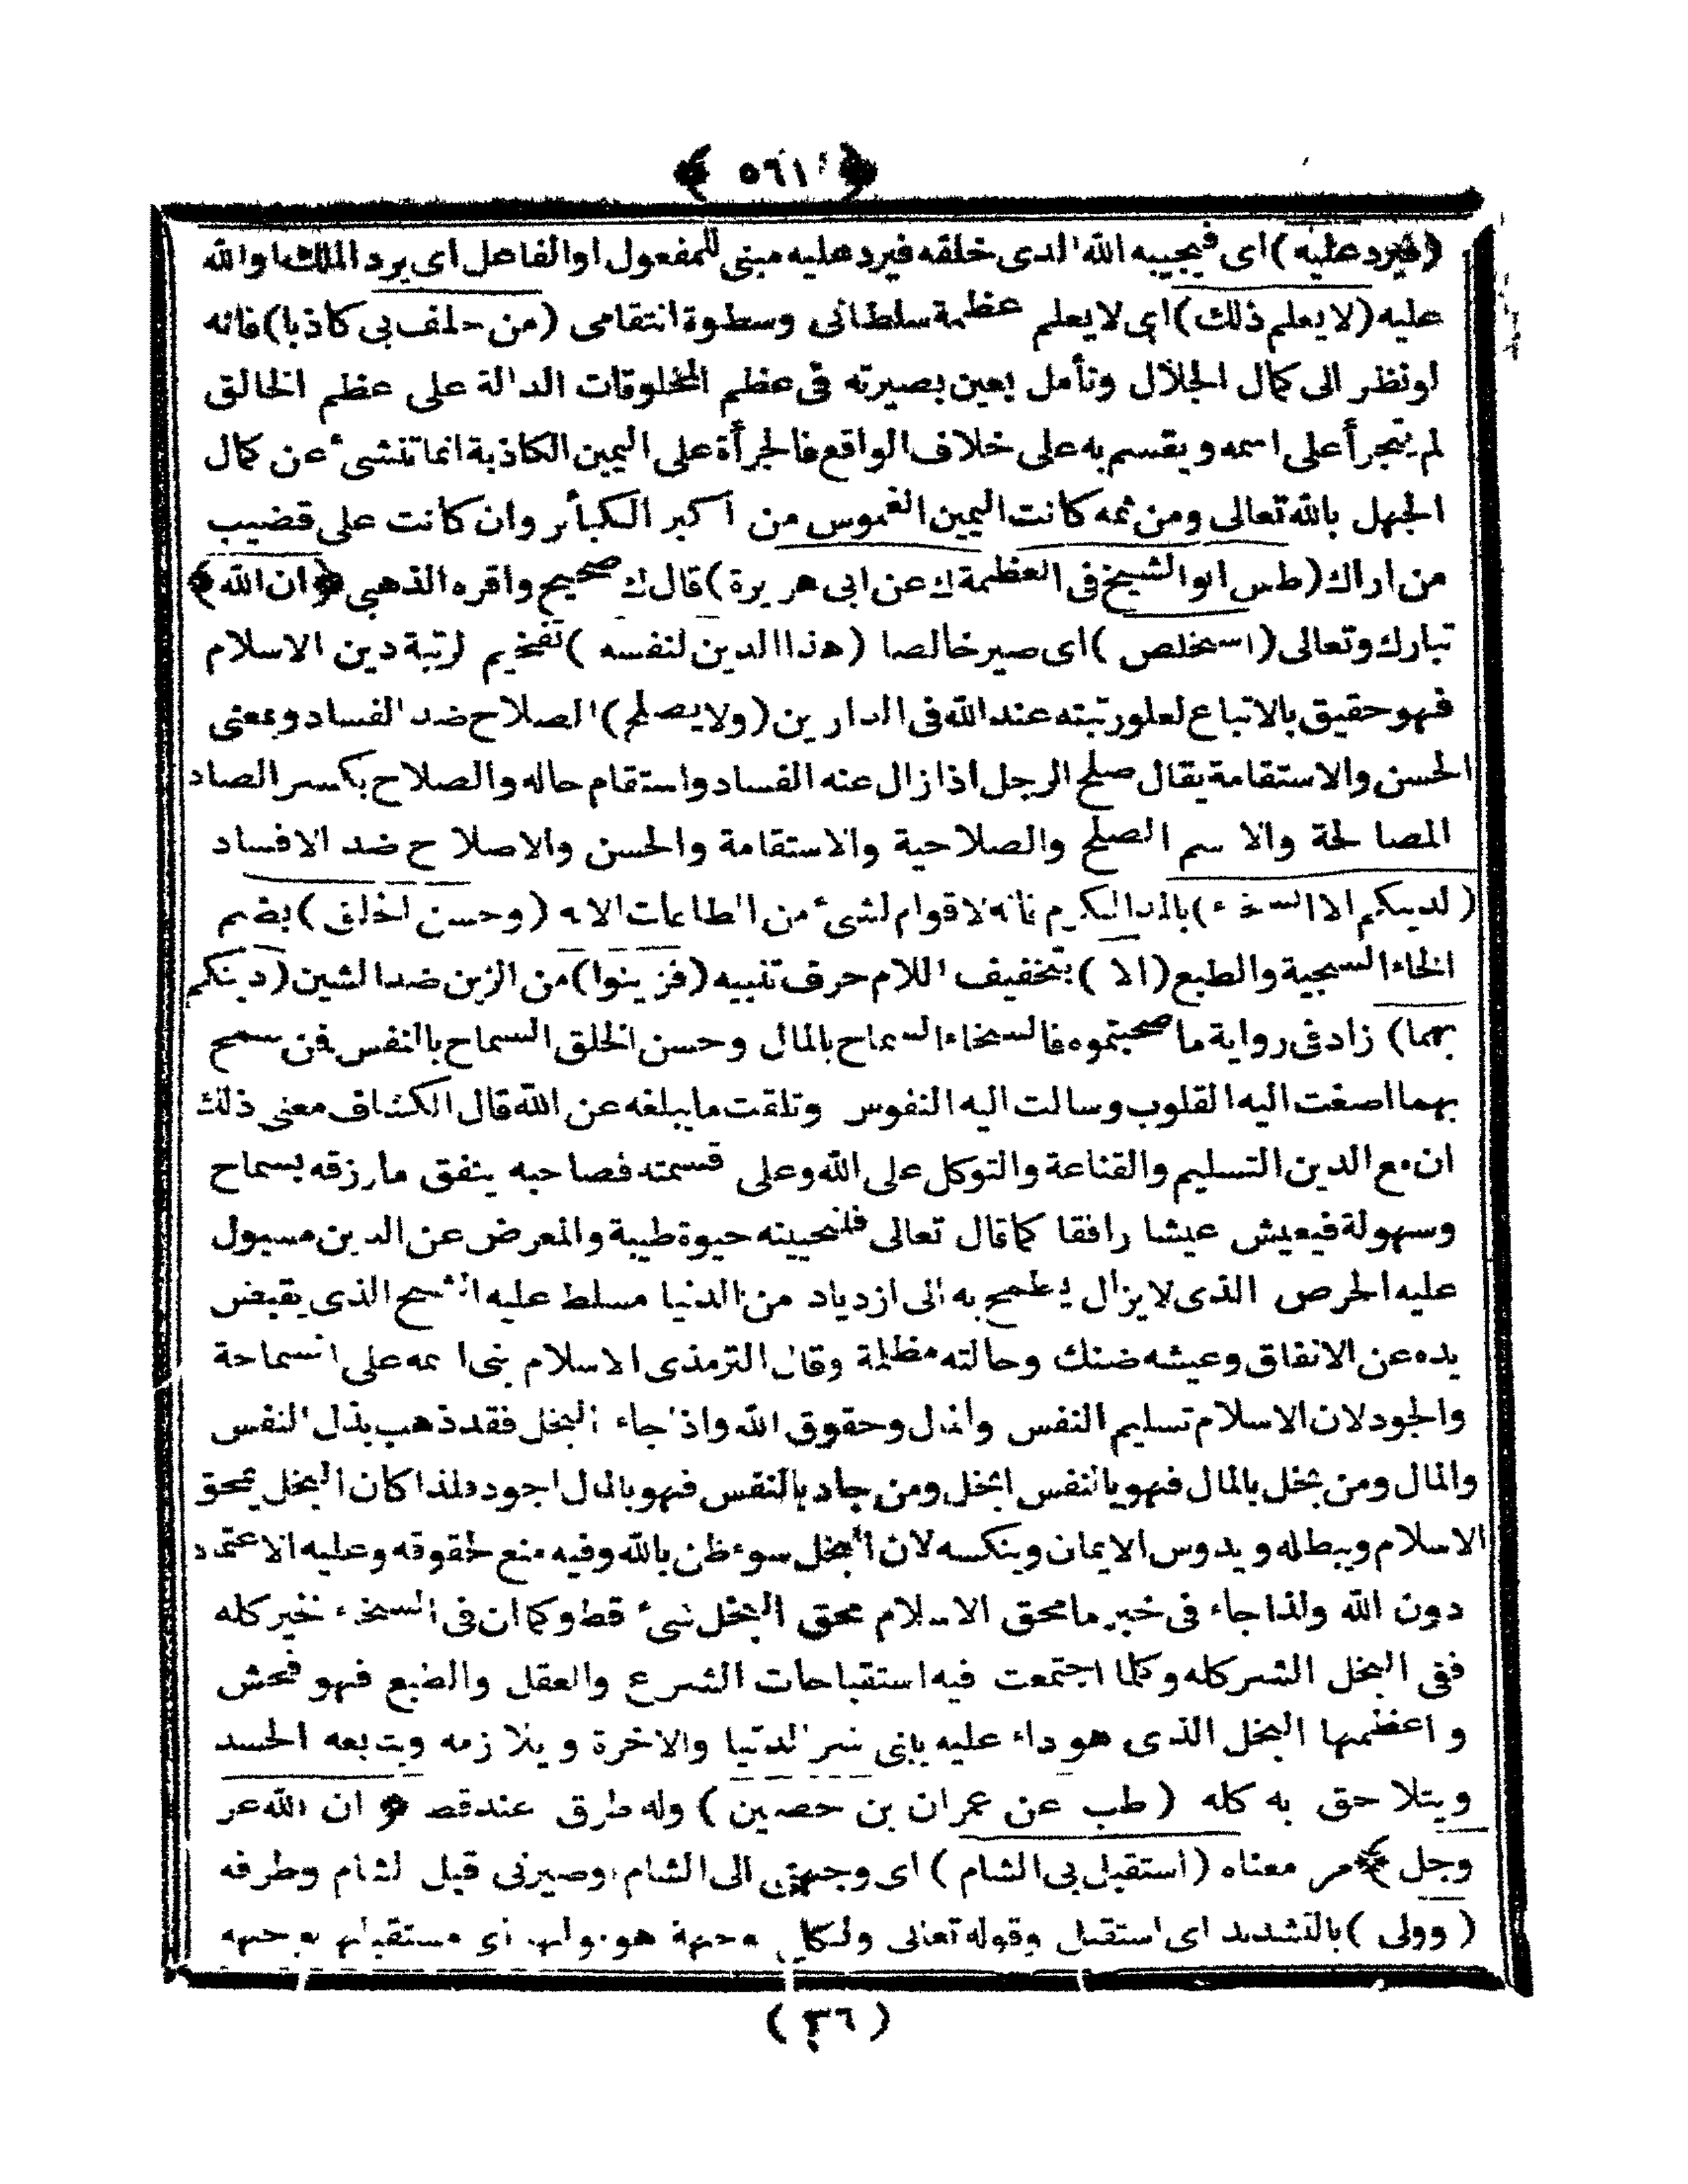 ﴿ ٥٦١ ﴾
(فيرد عليه) اى فيجيبه الله الذى خلقه فيرد عليه مبنى للمفعول او الفاعل اى يرد الملك او الله
عليه (لا يعلم ذلك) اى لا يعلم عظمة سلطانى وسطوة انتقامى (من حلف بى كاذبا) فانه
لونظر الى كمال الجلال وتأمل بعين بصيرته فى عظم المخلوقات الدالة على عظم الخالق
لم يتجرأ على اسمه ويقسم به على خلاف الواقع فالجرأة على اليمين الكاذبة انما تنشىء عن كمال
الجهل بالله تعالى ومن ثمه كانت اليمين الغموس من اكبر الكبائر وان كانت على قضيب
من اراك (طس ابو الشيخ فى العظمة ك عن ابى هريرة) قال ك صحيح واقره الذهبى ﴿ان الله﴾
تبارك وتعالى (استخلص) اى صير خالصا (هذا الدين لنفسه) تفخيم لرتبة دين الاسلام
فهو حقيق بالاتباع لعلو رتبته عند الله فى الدارين (ولا يصلح) الصلاح ضد الفساد وبمعنى
الحسن والاستقامة يقال صلح الرجل اذا زال عنه الفساد واستقام حاله والصلاح بكسر الصاد
المصالحة والاسم الصلح والصلاحية والاستقامة والحسن والاصلاح ضد الافساد
(لدينكم الا السخاء) بالمد الكرم فانه لا قوام لشىء من الطاعات الا به (وحسن الخلق) بضم
الخاء السجية والطبع (الا) بتخفيف اللام حرف تنبيه (فزينوا) من الزين ضد الشين (دينكم
بهما) زاد فى رواية ما صحبتموه فالسخاء السماح بالمال وحسن الخلق السماح بالنفس فمن سمح
بهما اصغت اليه القلوب وسالت اليه النفوس وتلقت ما يبلغه عن الله قال الكشاف معنى ذلك
ان مع الدين التسليم والقناعة والتوكل على الله وعلى قسمته فصاحبه ينفق ما رزقه بسماح
وسهولة فيعيش عيشا رافقا كما قال تعالى فلنحيينه حيوة طيبة والمعرض عن الدين مسبول
عليه الحرص الذى لا يزال يطمح به الى ازدياد من الدنيا مسلط عليه الشح الذى يقبض
يده عن الانفاق وعيشه ضنك وحالته مظلمة وقال الترمذى الاسلام بنى اسمه على السماحة
والجود لان الاسلام تسليم النفس والمال وحقوق الله واذا جاء البخل فقد ذهب بذل النفس
والمال ومن بخل بالمال فهو بالنفس ابخل ومن جاد بالنفس فهو بالمال اجود ولذا كان البخل يمحق
الاسلام ويبطله ويدوس الايمان وينكسه لان البخل سوء ظن بالله وفيه منع لحقوقه وعليه الاعتماد
دون الله ولذا جاء فى خبر ما محق الاسلام محق البخل شىء قط وكما ان فى السخاء خير كله
ففى البخل الشر كله وكلما اجتمعت فيه استقباحات الشرع والعقل والطبع فهو فحش
واعظمها البخل الذى هو داء عليه يبنى شر الدنيا والاخرة ويلازمه ويتبعه الحسد
ويتلاحق به كله (طب عن عمران بن حصين) وله طرق عند قط ﴿ ان الله عز
وجل ﴾ مر معناه (استقبل بى الشام) اى وجهنى الى الشام وصيرنى قبل لشام وطرفه
(وولى) بالتشديد اى استقبل وقوله تعالى ولكل وجهة هو موليها اى مستقبلها بوجهه
(٣٦)